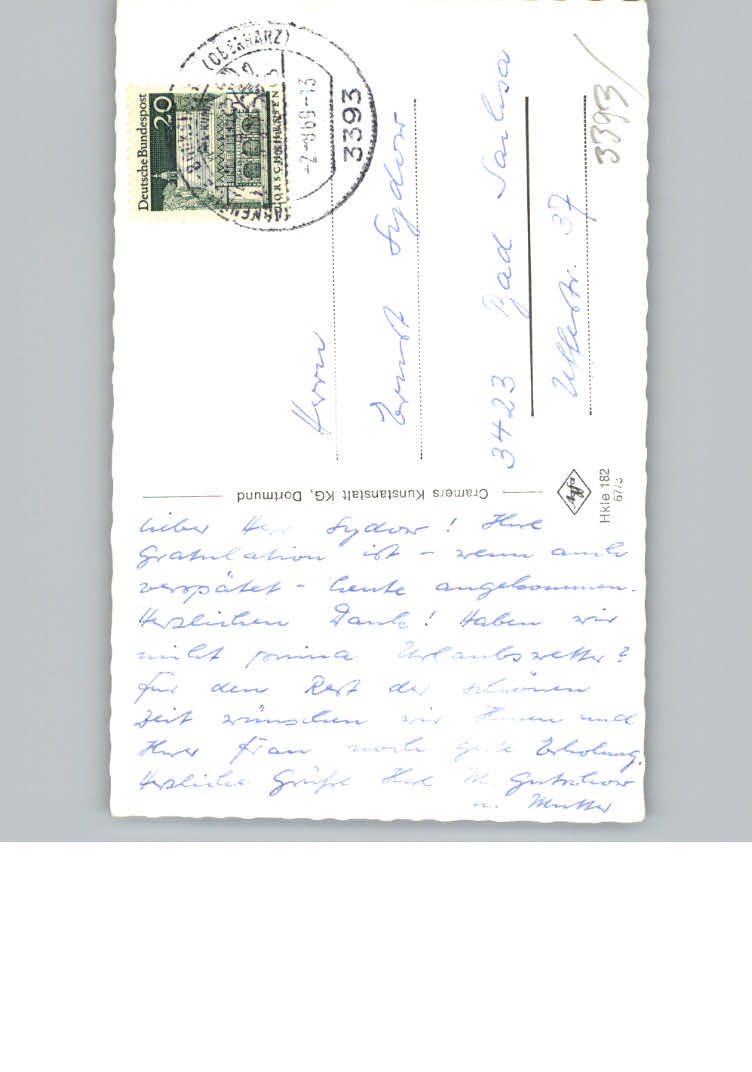 Deutsche Bundespost
20
LORSCH/HESSEN
(OBERHARZ)
-2.-8.69-13
3393
3393
Herrn
Ernst Sydow
3423 Bad Sachsa
Uffestr. 37
Cramers Kunstanstalt KG, Dortmund
Agfa
Hkle 182
67/3
Lieber Herr Sydow! Ihre
Gratulation ist - wenn auch
verspätet - heute angekommen.
Herzlichen Dank! Haben wir
nicht prima Urlaubswetter?
Für den Rest der schönen
Zeit wünschen wir Ihnen und
Ihrer Frau noch gute Erholung.
Herzliche Grüße Ihre M.
u. Mutter